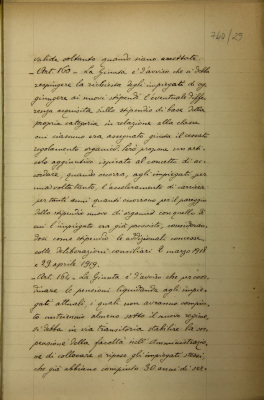 760/29
valide soltanto quando siano emettute.
Art. 160 - La Giunta è d'avviso che si debba
respingere la richiesta degli impiegati di ag-
giungere ai nuovi stipendi l'eventuale diffe-
renza acquisita sullo stipendio di base della
propria categoria in relazione alla classe
cui ciascuno era assegnato giusta il cessato
regolamento organico. Però propone un arti-
colo aggiuntivo ispirato al concetto di ac-
cordare, quando occorra, agli impiegati, per
una volta tanto, l'aceleramento di carriera
per tanti anni quanti occorrono per il pareggio
dello stipendio nuovo di organico con quello di
cui l'impiegato era già provvisto, consideran-
doci come stipendio le addizionali concesse
colle deliberazioni consiliari 2 marzo 1918
e 29 aprile 1919.
Art. 161 - La Giunta è d'avviso che per coor-
dinare le pensioni liquidande agli impie-
gati attuali, i quali non avranno compiu-
to un turnio almeno sotto il nuovo regime,
si debba in via transitoria stabilire la so-
spensione della facoltà nell'Amministrazio-
ne di collocare a riposo gli impiegati stessi,
che già abbiano compiuto 30 anni di ser-